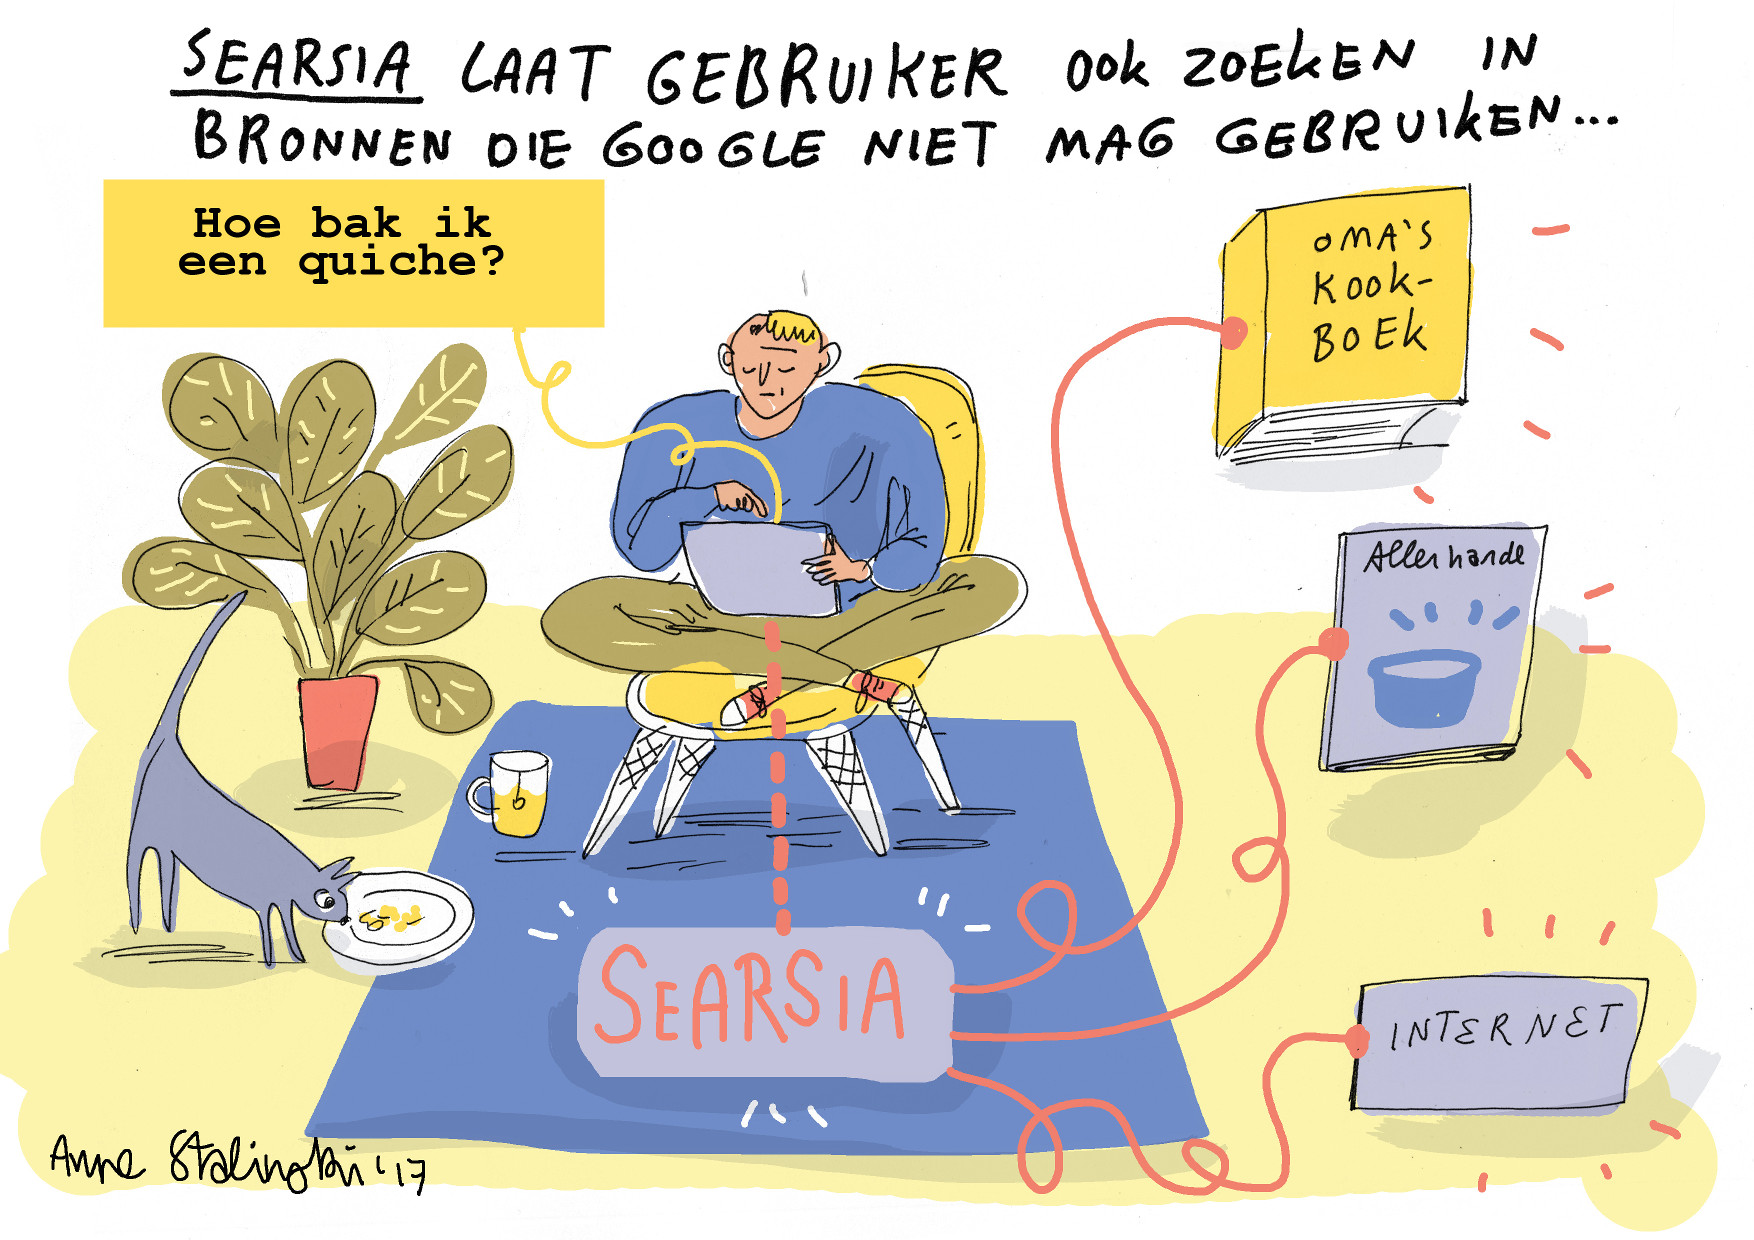 SEARSIA LAAT GEBRUIKER OOK ZOEKEN IN
BRONNEN DIE GOOGLE NIET MAG GEBRUIKEN...
Hoe bak ik
een quiche?
OMA'S
KOOK-
BOEK
Allerhande
SEARSIA
INTERNET
Anne Stalinski '17